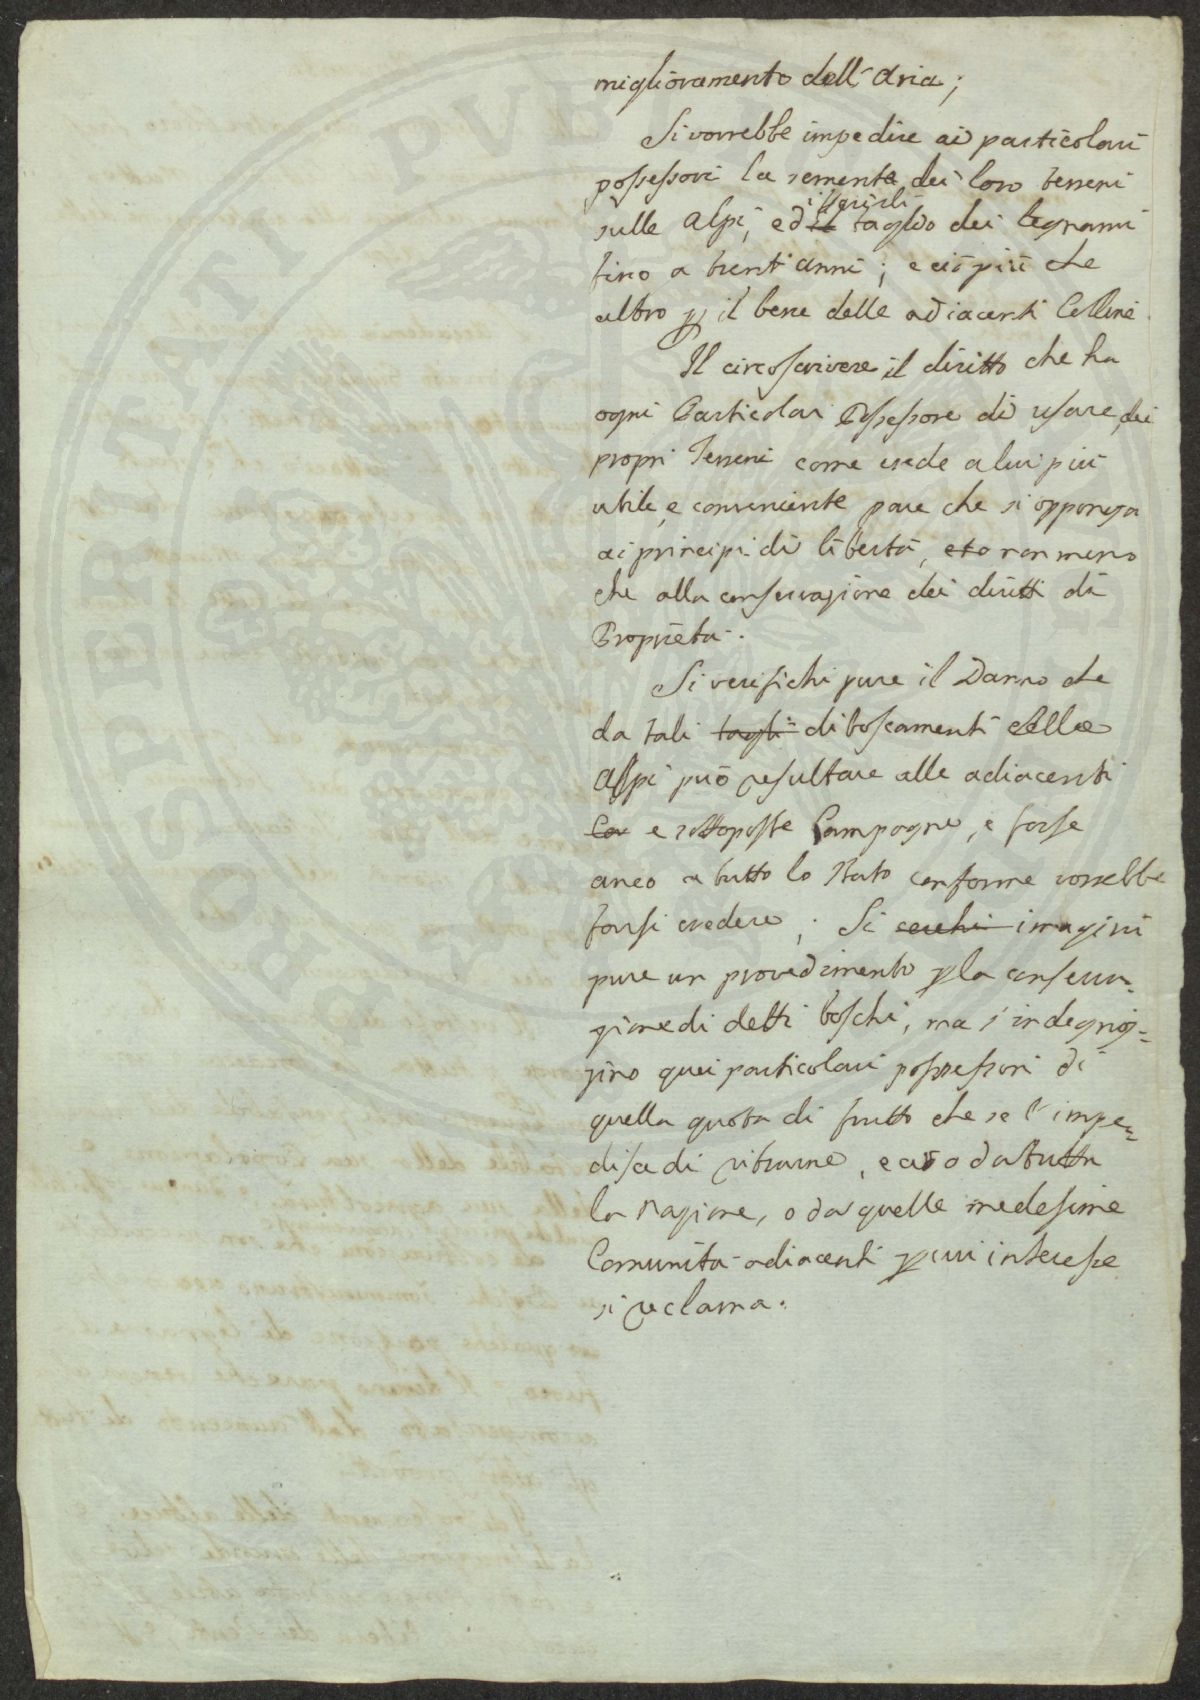 miglioramento dell'Aria;
Si vorrebbe impedire ai particolari
possessori la sementa dei loro terreni
sulle Alpi, ed il taglio dei legnami
fino a trent'anni; e ciò più che
altro p il bene delle adiacenti Colline.
Il circoscrivere il diritto che ha
ogni Particolar Possessore di usare dei
propri Terreni come crede a lui più
utile, e conveniente pare che si opponga
ai principi di libertà, e non meno
che alla conservazione dei diritti di
Proprietà.
Si verifichi pure il Danno che
da tali tagli diboscamenti delle
Alpi può resultare alle adiacenti
Ca e sottoposte Campagne, e forse
anco a tutto lo Stato conforme vorrebbe
farsi credere; Si cerchi imagini
pure un provedimento p la conserva-
zione di detti boschi, ma s'indegniz-
zino quei particolari possessori di
quella quota di frutto che se l'impe-
disce di ritrarne, e ciò o da tutta
la Nazione, o da quelle medesime
Comunità adiacenti p cui interesse
si reclama.
PVB